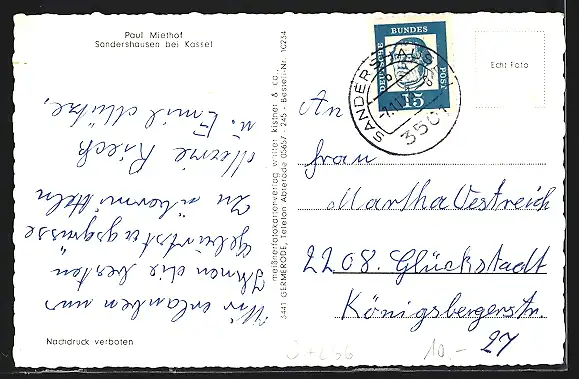 Paul Miethof
Sandershausen bei Kassel
Wir erlauben uns
Ihnen die besten
Geburtstagsgrüsse
zu übermitteln
Rieck
u. Emil Mütze,
Nachdruck verboten
meißnerfotokartenverlag entter kistner & co.,
3441 GERMERODE, Telefon Abterode 05657 - 245 - Bestell-Nr. 10234
DEUTSCHE BUNDESPOST
15
SANDERSHAUSEN
3501
Echt Foto
An
Frau
Martha Oestreich
2208. Glückstadt
Königsbergerstr.
27
10.-